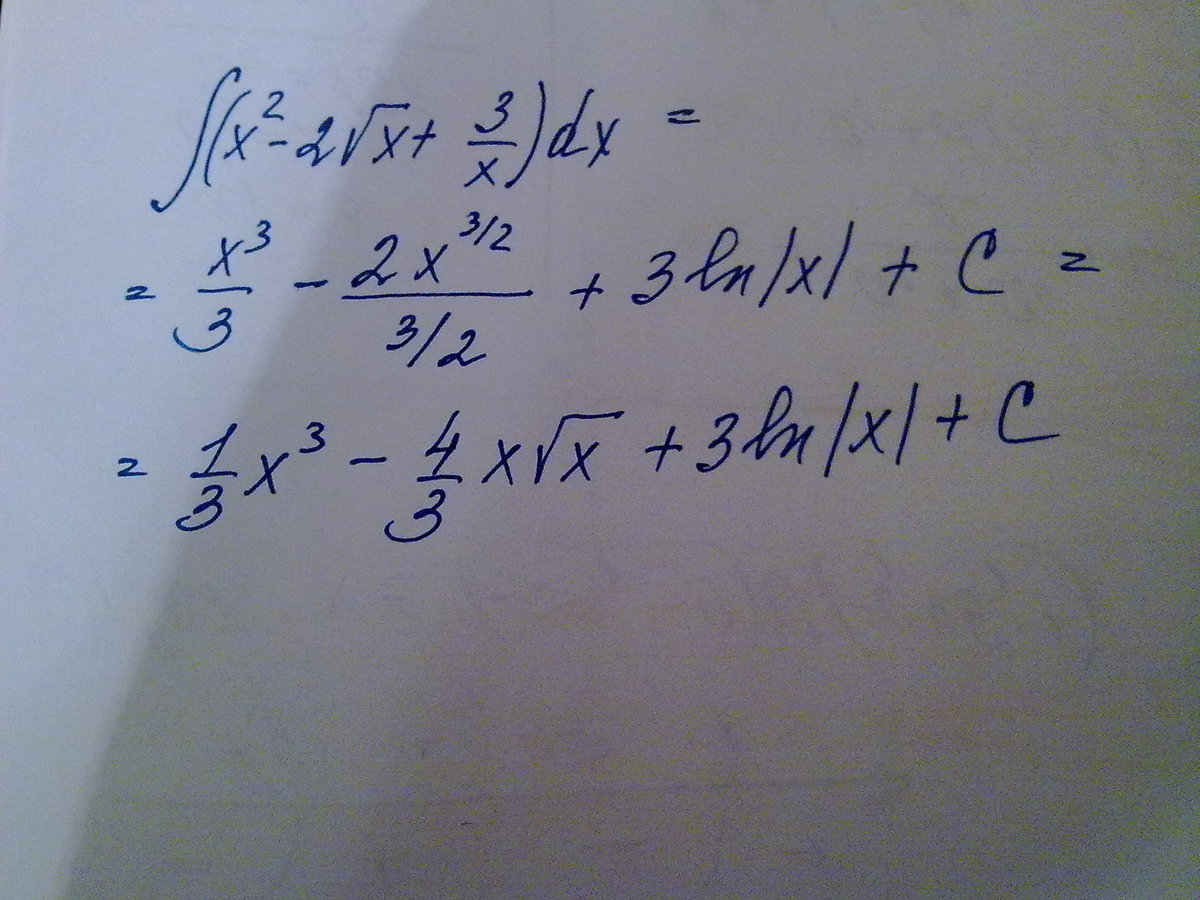 ∫(x² - 2√x + 3/x)dx =
= x³/3 - 2x^(3/2)/(3/2) + 3ln|x| + C =
= 1/3 x³ - 4/3 x√x + 3ln|x| + C